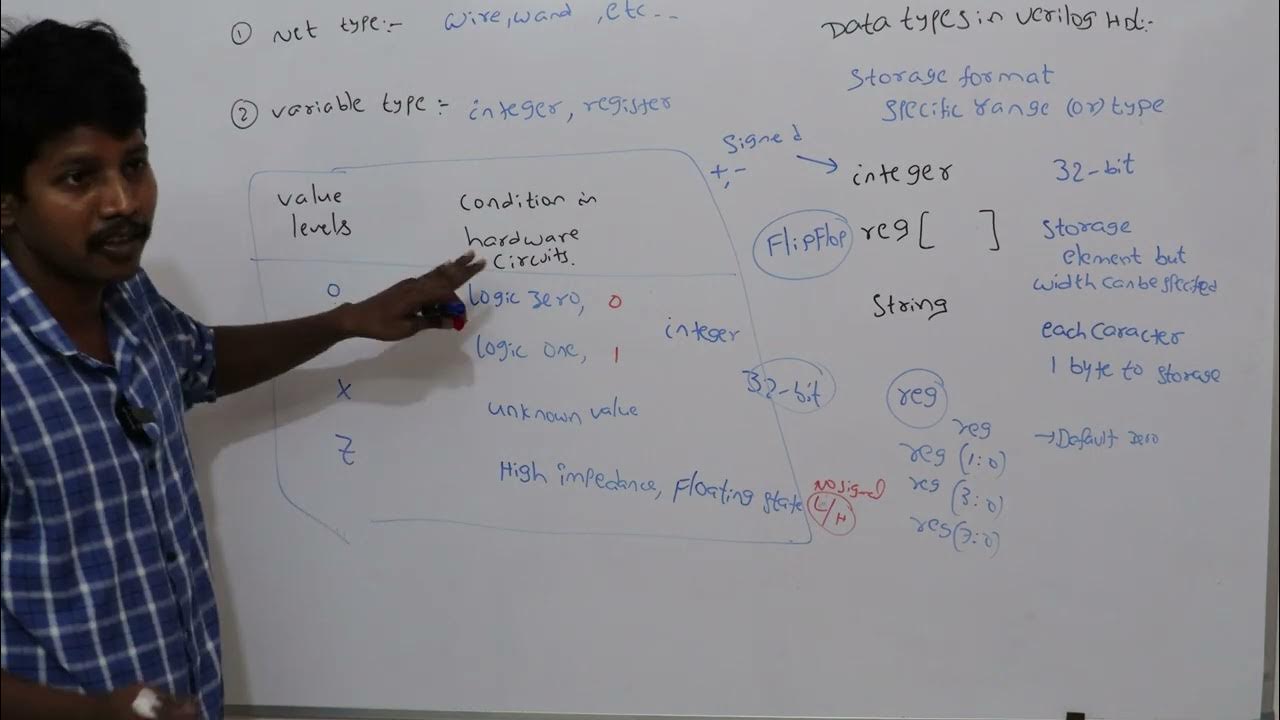 ① Net type:- wire, wand, etc...
② variable type:- integer, register
value levels
Condition in
hardware
circuits.
0
logic zero, 0
logic one, 1
integer
X
unknown value
Z
High impedance, Floating state
32-bit
Data types in verilog Hdl:-
Storage format
specific range (or) type
Signed
+,-
integer 32-bit
FlipFlop
reg [ ]
Storage
element but
width can be
String
each caracter
1 byte to storage
reg
reg → Default zero
reg (1:0)
reg (3:0)
reg (7:0)
No signed
L/H